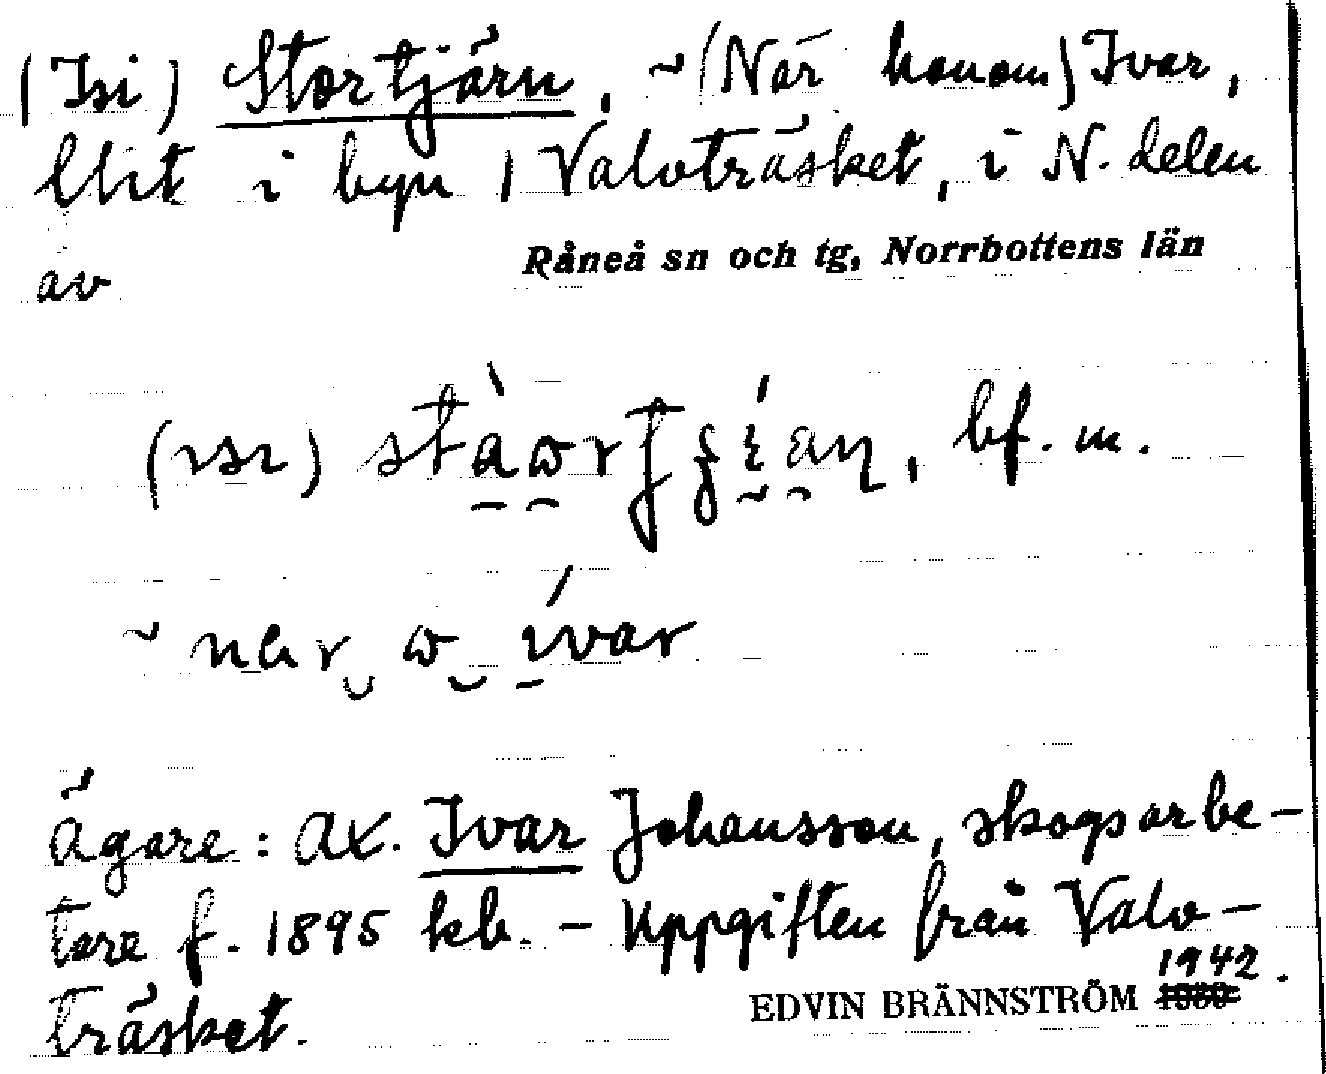 (Isi) Stortjärn, ~ (När honom) Ivar,
litet i byn i Valvträsket, i N. delen
av Råneå sn och tg, Norrbottens län
bf. m.
~
Ägare: Ax. Ivar Johansson, skogsarbe-
tare f. 1895 kb. - Uppgiften från Valv-
träsket. EDVIN BRÄNNSTRÖM 1942.